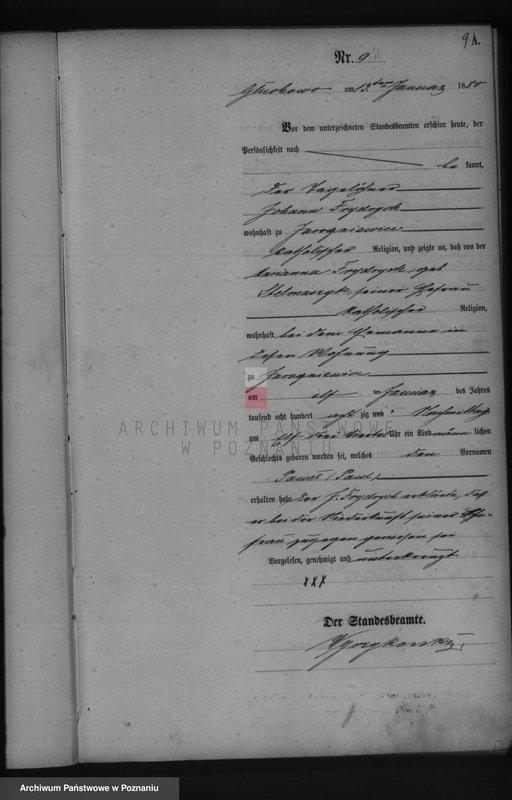 9 A.
Nr. 9
Gluchowo am 13ten Januar 1880
Vor dem unterzeichneten Standesbeamten erschien heute, der
Persönlichkeit nach
be kannt,
der Tagelöhner
Johann Frydrych
wohnhaft zu Jarogniewice
katholischer Religion, und zeigte an, daß von der
Marianna Frydrych geb
Stelmaszyk, seiner Ehefrau
katholischer Religion,
wohnhaft bei dem Ehemanne in
dessen Wohnung
zu Jarogniewice
am elf ten Januar des Jahres
tausend acht hundert acht zig und Nachmittags
um drei Viertel Uhr ein Kind männ lichen
Geschlechts geboren worden sei, welches den Vornamen
Paweł (Paul)
erhalten habe. Der Frydrych erklärte, daß
er bei der Niederkunft seiner Ehe-
frau zugegen gewesen sei
Vorgelesen, genehmigt und unterkreuzt
xxx
Der Standesbeamte.
ARCHIWUM PAŃSTWOWE
W POZNANIU
Archiwum Państwowe w Poznaniu